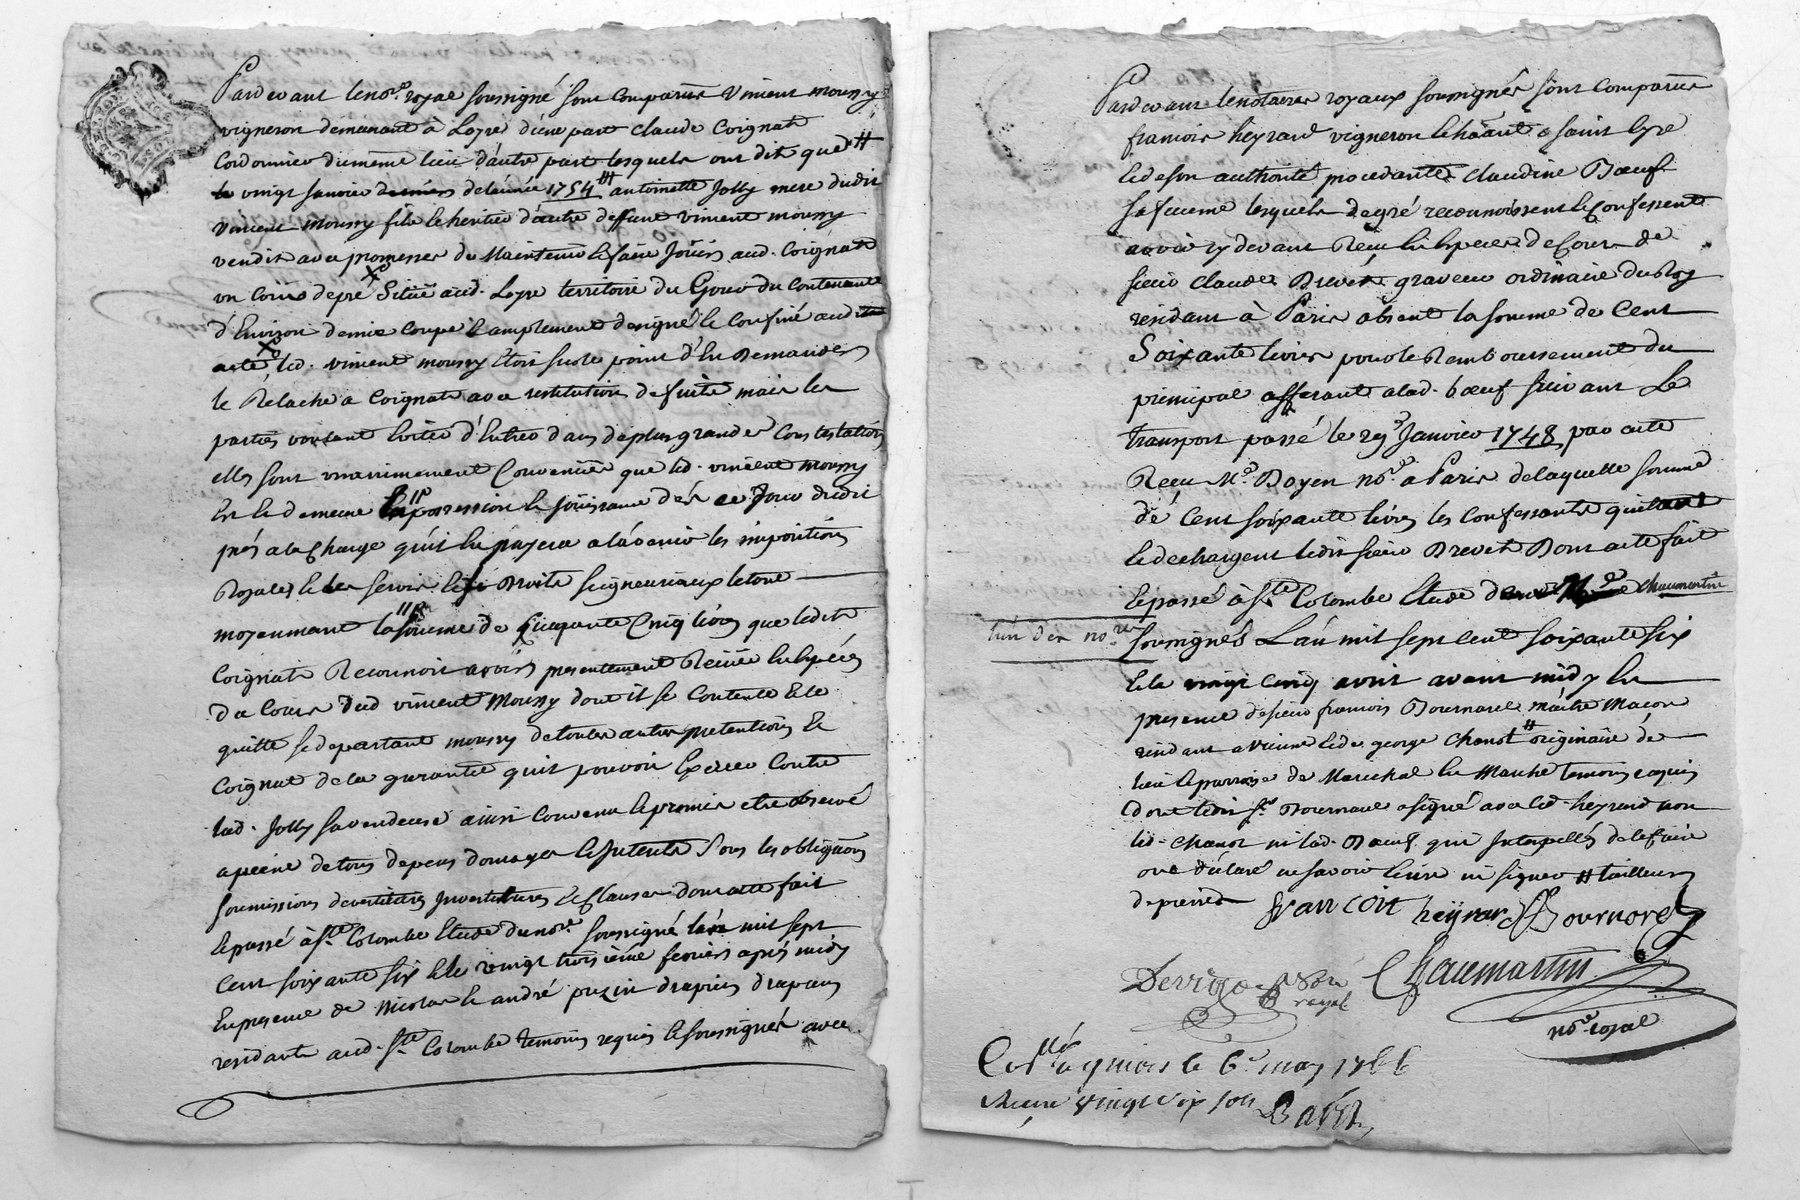 Pardevant le no.re royal soussigné sont comparus Vincent moussy
vigneron demeurant à Loyre d'une part claude Coignat
Cordonnier du même lieu d'autre part lesquels ont dit que #
le vingt Janvier de l'année 1754 antoinette Jolly mere dudit
vincent moussy fils & heritier d'autre deffunt vincent moussy
vendit avec promesses de Maintenir & faire Jouir aud. Coignat
un Coin de pré Situé aud. Loyre territoire du Contenant
d'Environ demie coupe & amplement designé & Confiné aud.
acte led. vincent moussy étoit sur le point d'En Demander
le Relache a Coignat avec restitution de fruits mais les
parties voulant Eviter d'Entrer dans de plus grandes Contestations
elles sont unanimement Convenues que led. vincent moussy
En & demeure possession & joüissance dés ce Jour dudit
prés a la Charge qu'il En payera a l'avenir les impositions
Royales & les servis & Droits Seigneuriaux le tout
moyennant la somme de Cinquante Cinq livres que ledit
Coignat Reconnoit avoir presentement Reçüe En Espéces
de Cours dud vincent Moussy dont il se Contente & le
quitte se departant moussy de toutes autres pretentions &
Coignat de la garantie qu'il pouvoit Exercer Contre
lad. Jolly sa vendeuse ainsi Convenu & promis etre observé
a peine de tous depens domages & Interets Sous les obligaõns
soumissions & Clauses dont acte fait
& passé à Ste Colombe Etude du no.re soussigné l'an mil sept
Cent soixante six & le vingt troisiéme fevrier aprés midy
En presence de Nicolas & andré puzin drapiers drapans
residants aud. Ste Colombe temoins requis & soussignés avec
Pardevant les notaires royaux soussignés sont Comparus
francois heyrard vigneron & habitant a saint Cyre
& de son authorité procedante claudine Bœuf
sa femme lesquels de gré reconnoissent & Confessent
avoir cy devant Reçu En Especes de Cours de
sieur Claude Drevet graveur ordinaire du Roy
residant à Paris absent la somme de Cent
Soixante livres pour le Remboursement du
principal afferant a lad. bœuf suivant Le
transport passé le Janvier 1748 par acte
Reçu Me. Doyen no.re a Paris de laquelle somme
de Cent soixante livres les Confessants quittent
& dechargent ledit sieur Drevet Dont acte fait
& passé à Ste Colombe Etude de Me chaumartin
l'un des no.res
soussignés L'an mil sept cent soixante six
& le vingt cinq avril avant midy En
presence de sieur francois Bournarel maitre Macon
residant a vienne & de george chanot # originaire de
lieu & parroisse de Marechal En Marche temoins requis
dont ledit Sr. Bournarel a signé avec led. heyrard non
led. chanot ni lad. Bœuf qui Interpellés de le faire
ont déclaré ne savoir Ecrire ni signer # tailleur
de pierre
francoit heyrard Bournorel
Chaumartin
no.re royal
Lé a le 6e. may 1766
Reçu vingt six sols